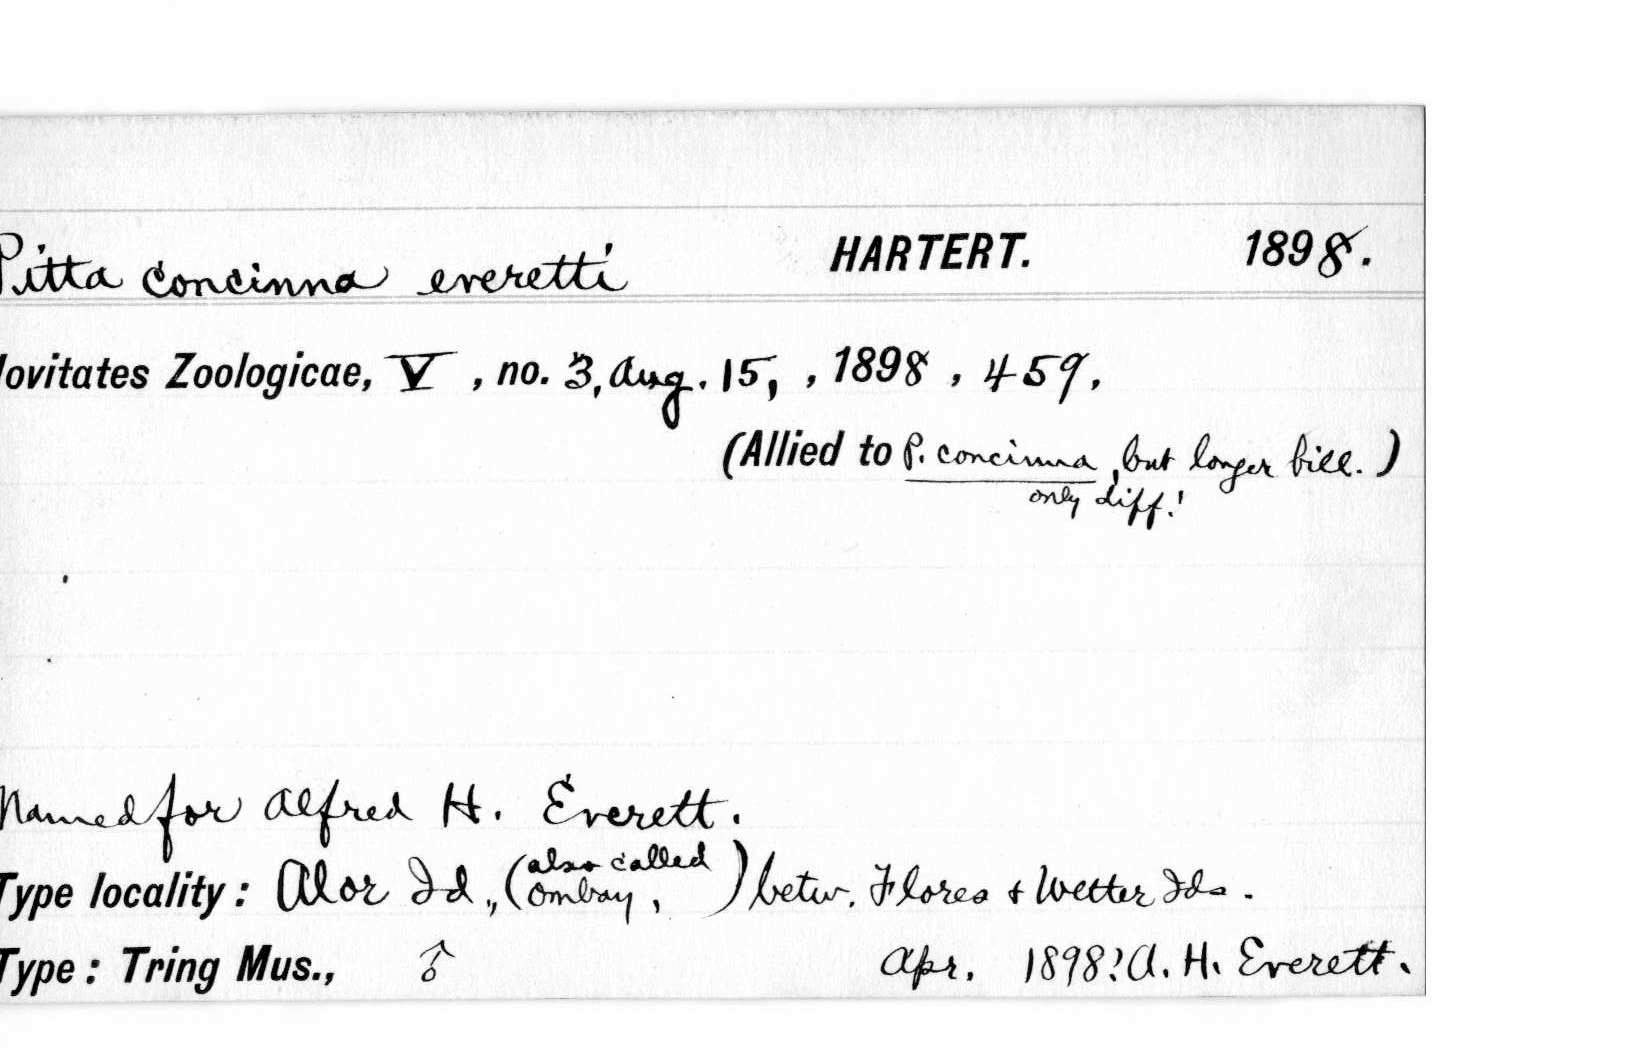 Pitta concinna everetti HARTERT. 1898.
ovitates Zoologicae, V, no. 3, Aug. 15, , 1898, 459.
(Allied to P. concinna, but longer bill.)
only diff!
Named for Alfred H. Everett.
Type locality: Alor Id., (also called Ombay, ) betw. Flores & Wetter Ids.
Type: Tring Mus., ♂ Apr. 1898? A. H. Everett.